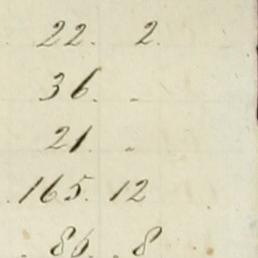 22. 2.
36. -
21. -
165. 12
86. 8